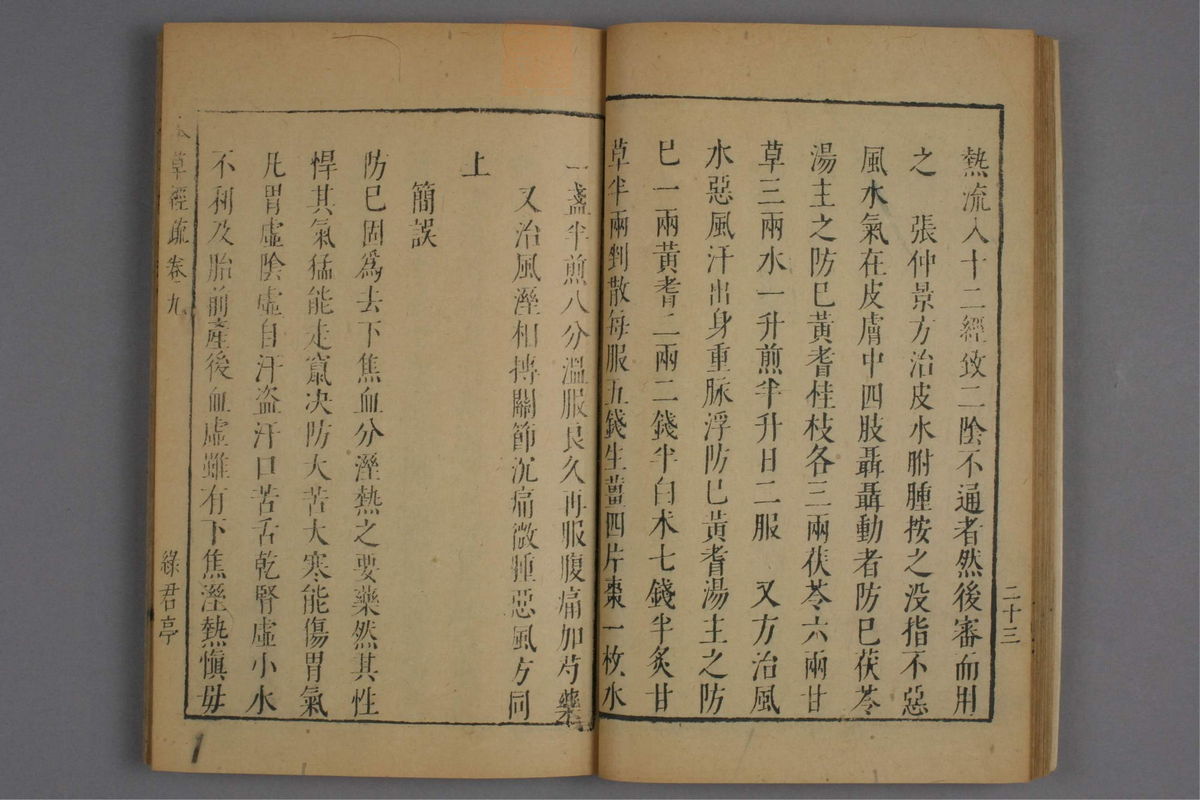 熱流入十二經致二陰不通者然後審而用
之　張仲景方治皮水胕腫按之没指不惡
風水氣在皮膚中四肢聶聶動者防巳茯苓
湯主之防巳黃耆桂枝各三兩茯苓六兩甘
草三兩水一升煎半升日二服　又方治風
水惡風汗出身重脉浮防巳黃耆湯主之防
巳一兩黃耆二兩二錢半白朮七錢半炙甘
草半兩剉散每服五錢生薑四片棗一枚水
二十三
一盞半煎八分溫服良久再服腹痛加芍藥
又治風溼相摶關節沉痛微腫惡風方同
上
簡誤
防巳固爲去下焦血分溼熱之要藥然其性
悍其氣猛能走竄决防大苦大寒能傷胃氣
凡胃虛陰虛自汗盜汗口苦舌乾腎虛小水
不利及胎前產後血虛雖有下焦溼熱愼毋
草經疏卷九
綠君亭